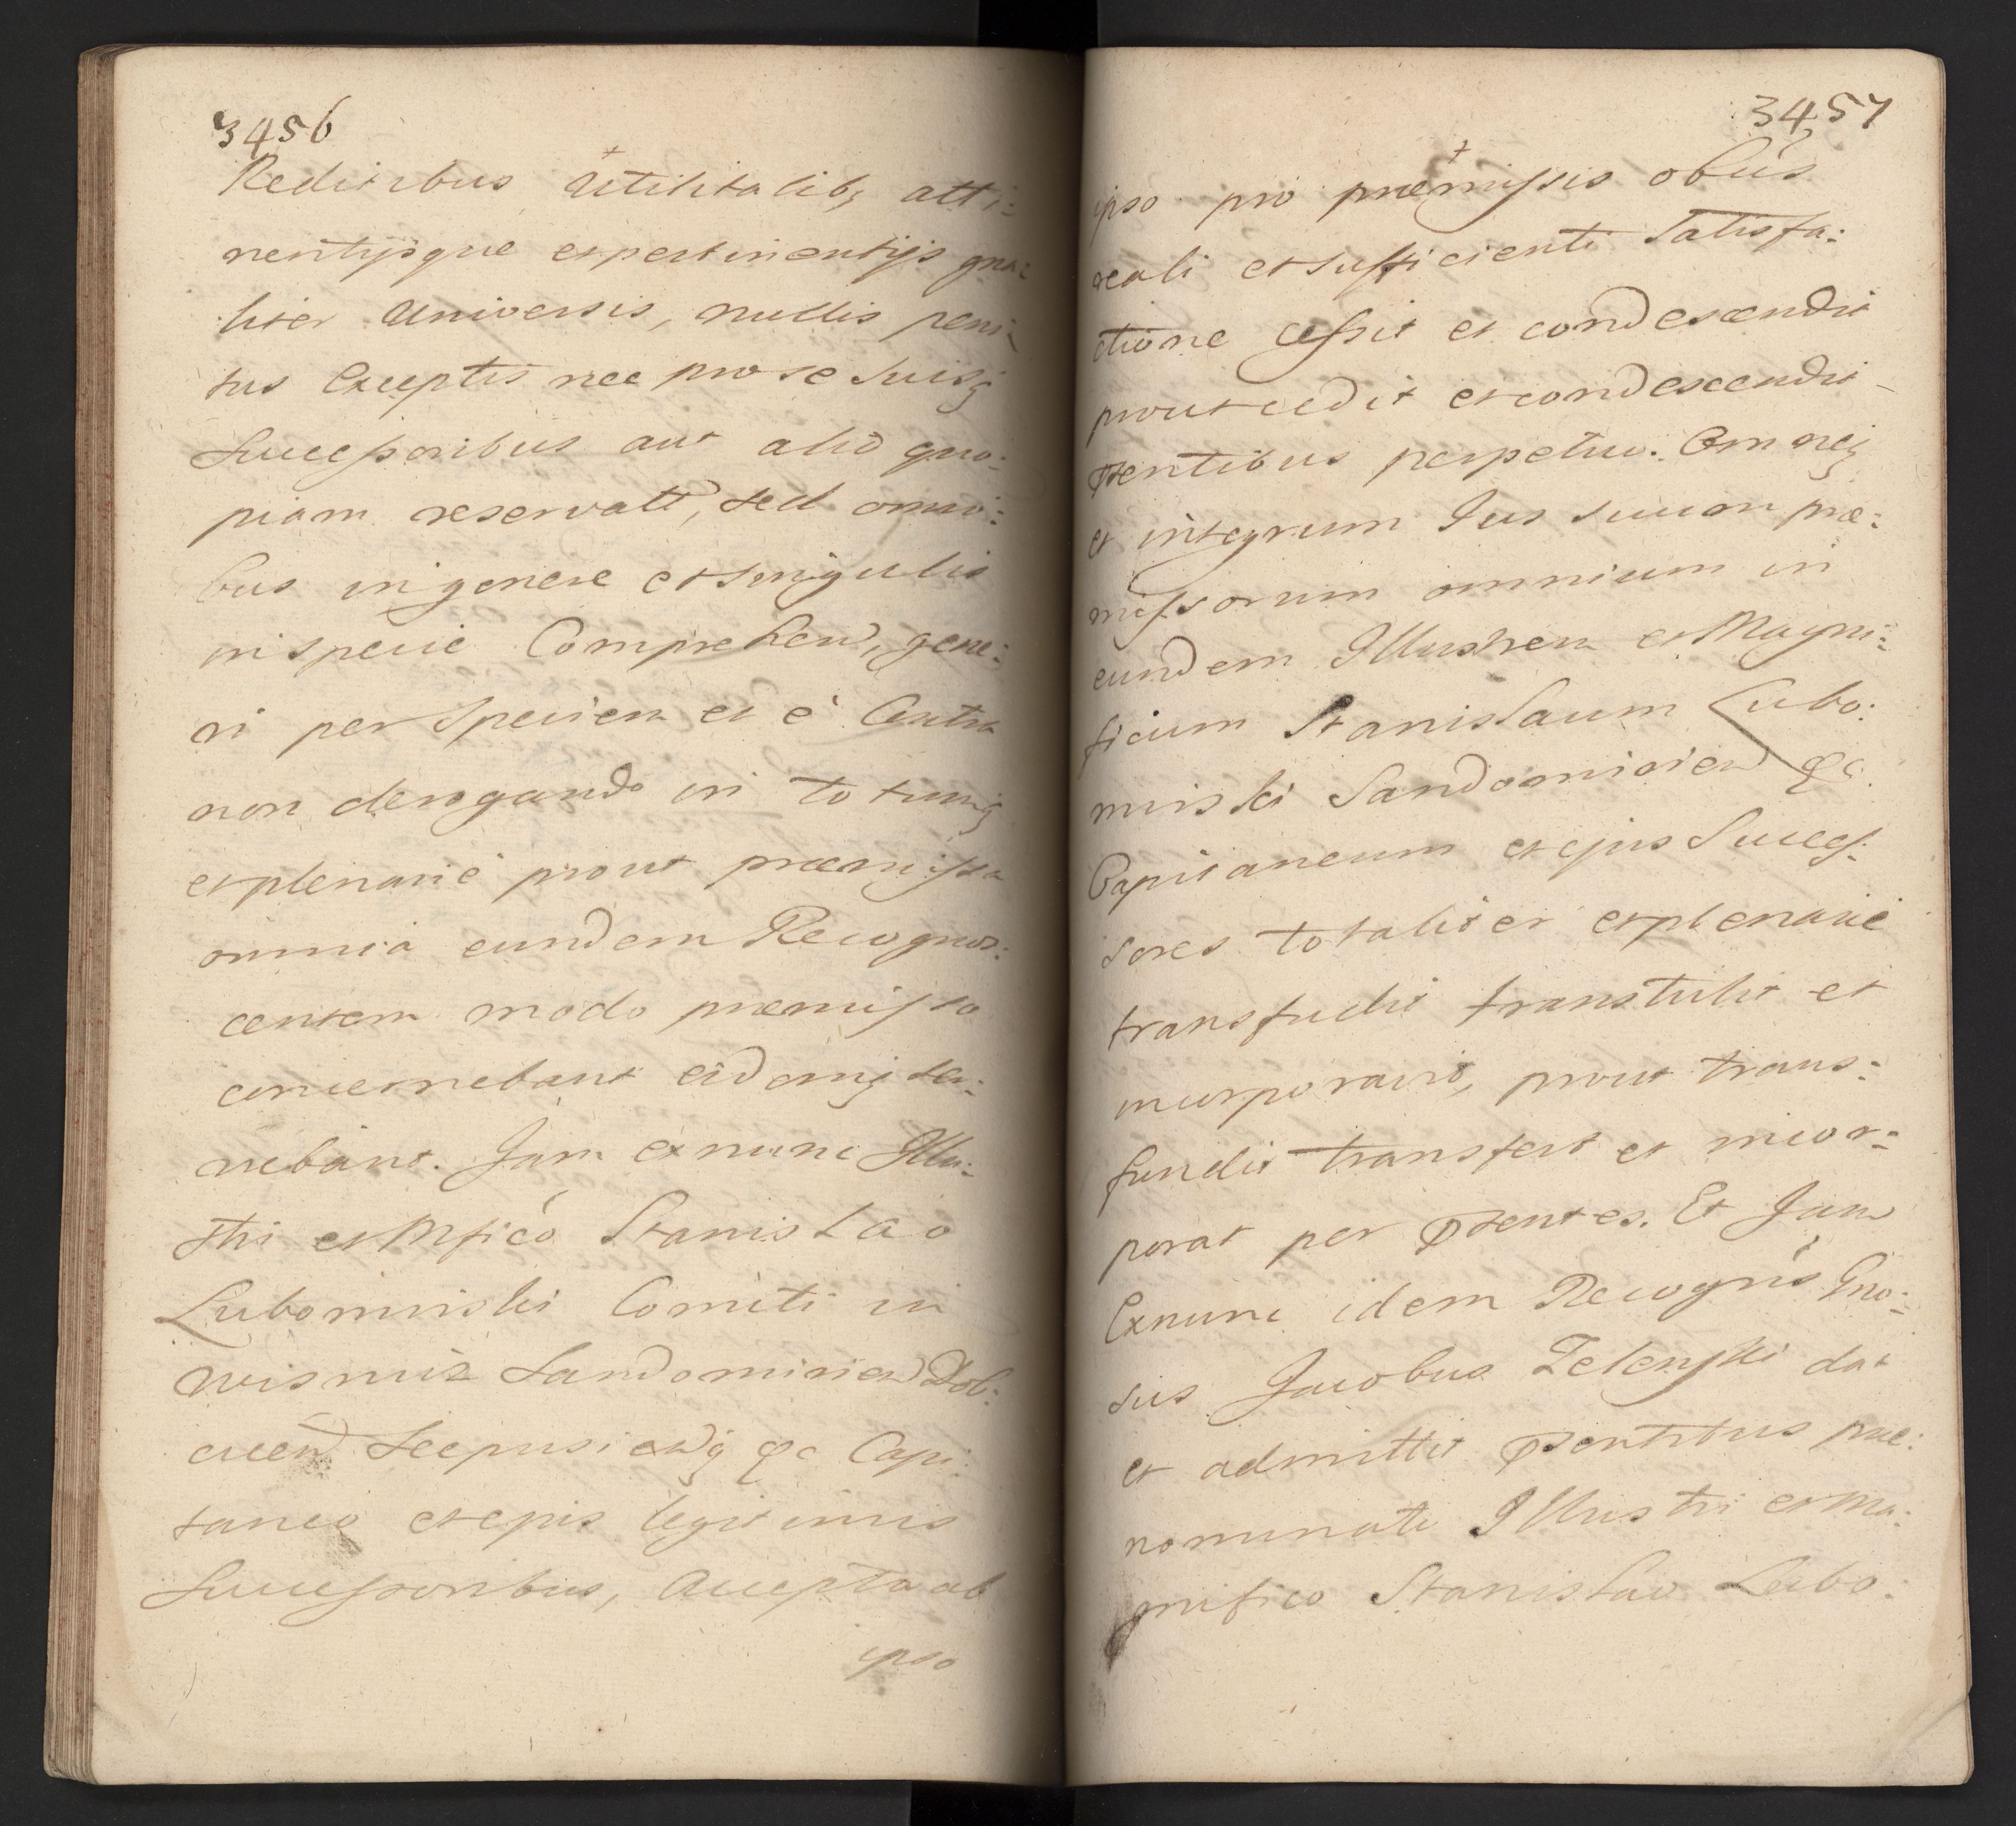 3456
Reditibus Utilitatibq atti:
nentijsque et pertinentijs gna:
liter Universis, nullis peni:
tus Exceptis nec pro se Suisq
Successoribus aut alio quo:
piam reservatt, sed omni:
bus in genere et singulis
in specie Comprehen, gene:
ri per Speciem et è Contra
non derogando in totumq
et plenarie prout præmissa
omnia eundem Recognos:
centem modo præmisso
concernebant eidemq ser:
viebant. Jam exnunc Illu:
stri et Mfico Stanislao
Lubomirski Comiti in
Wisnicz Sandomirien Dob:
cicen Scepusienq &c Capi:
taneo et ejus legitimis
Successoribus, Accepta ab
ipso
3457
ipso pro præmissis obus
reali et sufficienti Satisfa:
ctione cessit et condescendit
prout cedit et condescendit
psentibus perpetuo. Omneq
et integrum Jus suum præ:
missorum omnium in
eundem Illustrem et Magni:
ficum Stanislaum Lubo:
mirski Sandomirien &c.
Capitaneum et ejus Succes:
sores totaliter et plenarie
transfudit transtulit et
incorporavit, prout trans:
fundit transfert et incor:
porat per psentes. Et Jam
Exnunc idem Recogns Gno:
sus Jacobus Zelenski dat
et admittit psentibus præ:
nominato Illustri et Ma:
gnifico Stanislao Lubo: